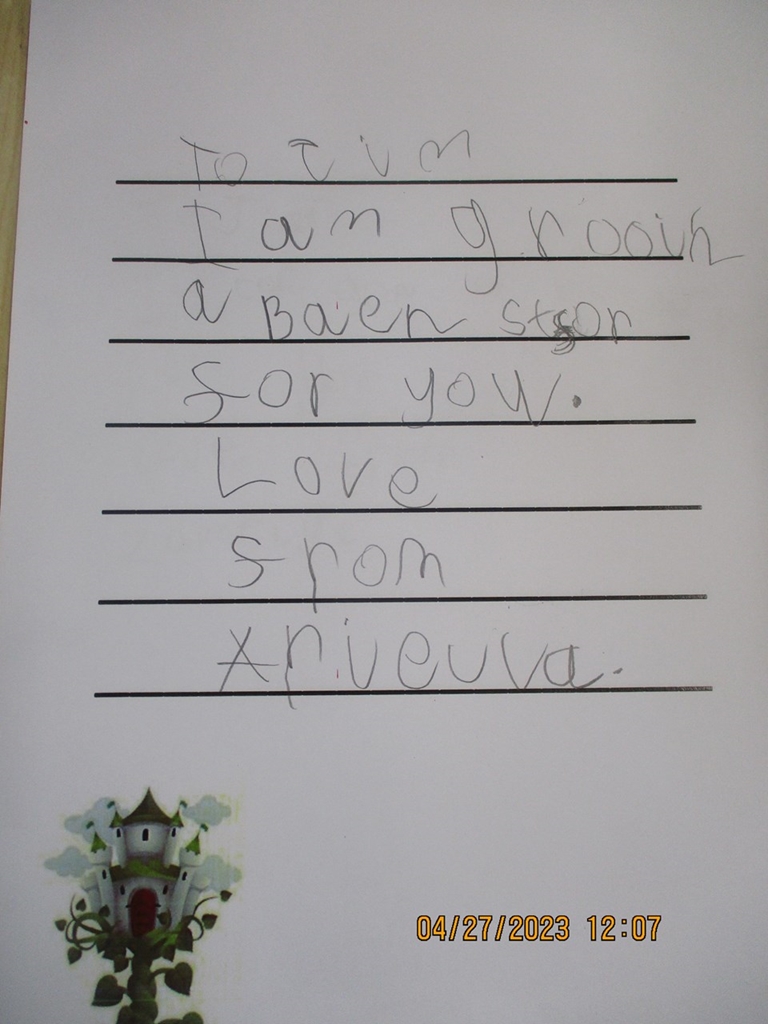 To Tim
I am grooin
a Baen stor
for yow.
Love
from
Ariveuva.
04/27/2023 12:07